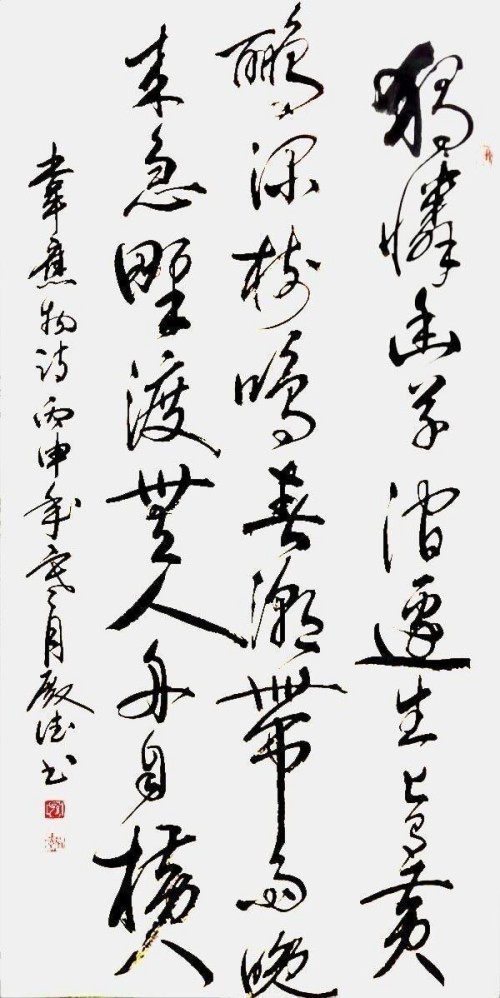 獨憐幽草澗邊生上有黃
鸝深樹鳴春潮帶雨晚
來急野渡無人舟自橫
韋應物詩丙申年月書